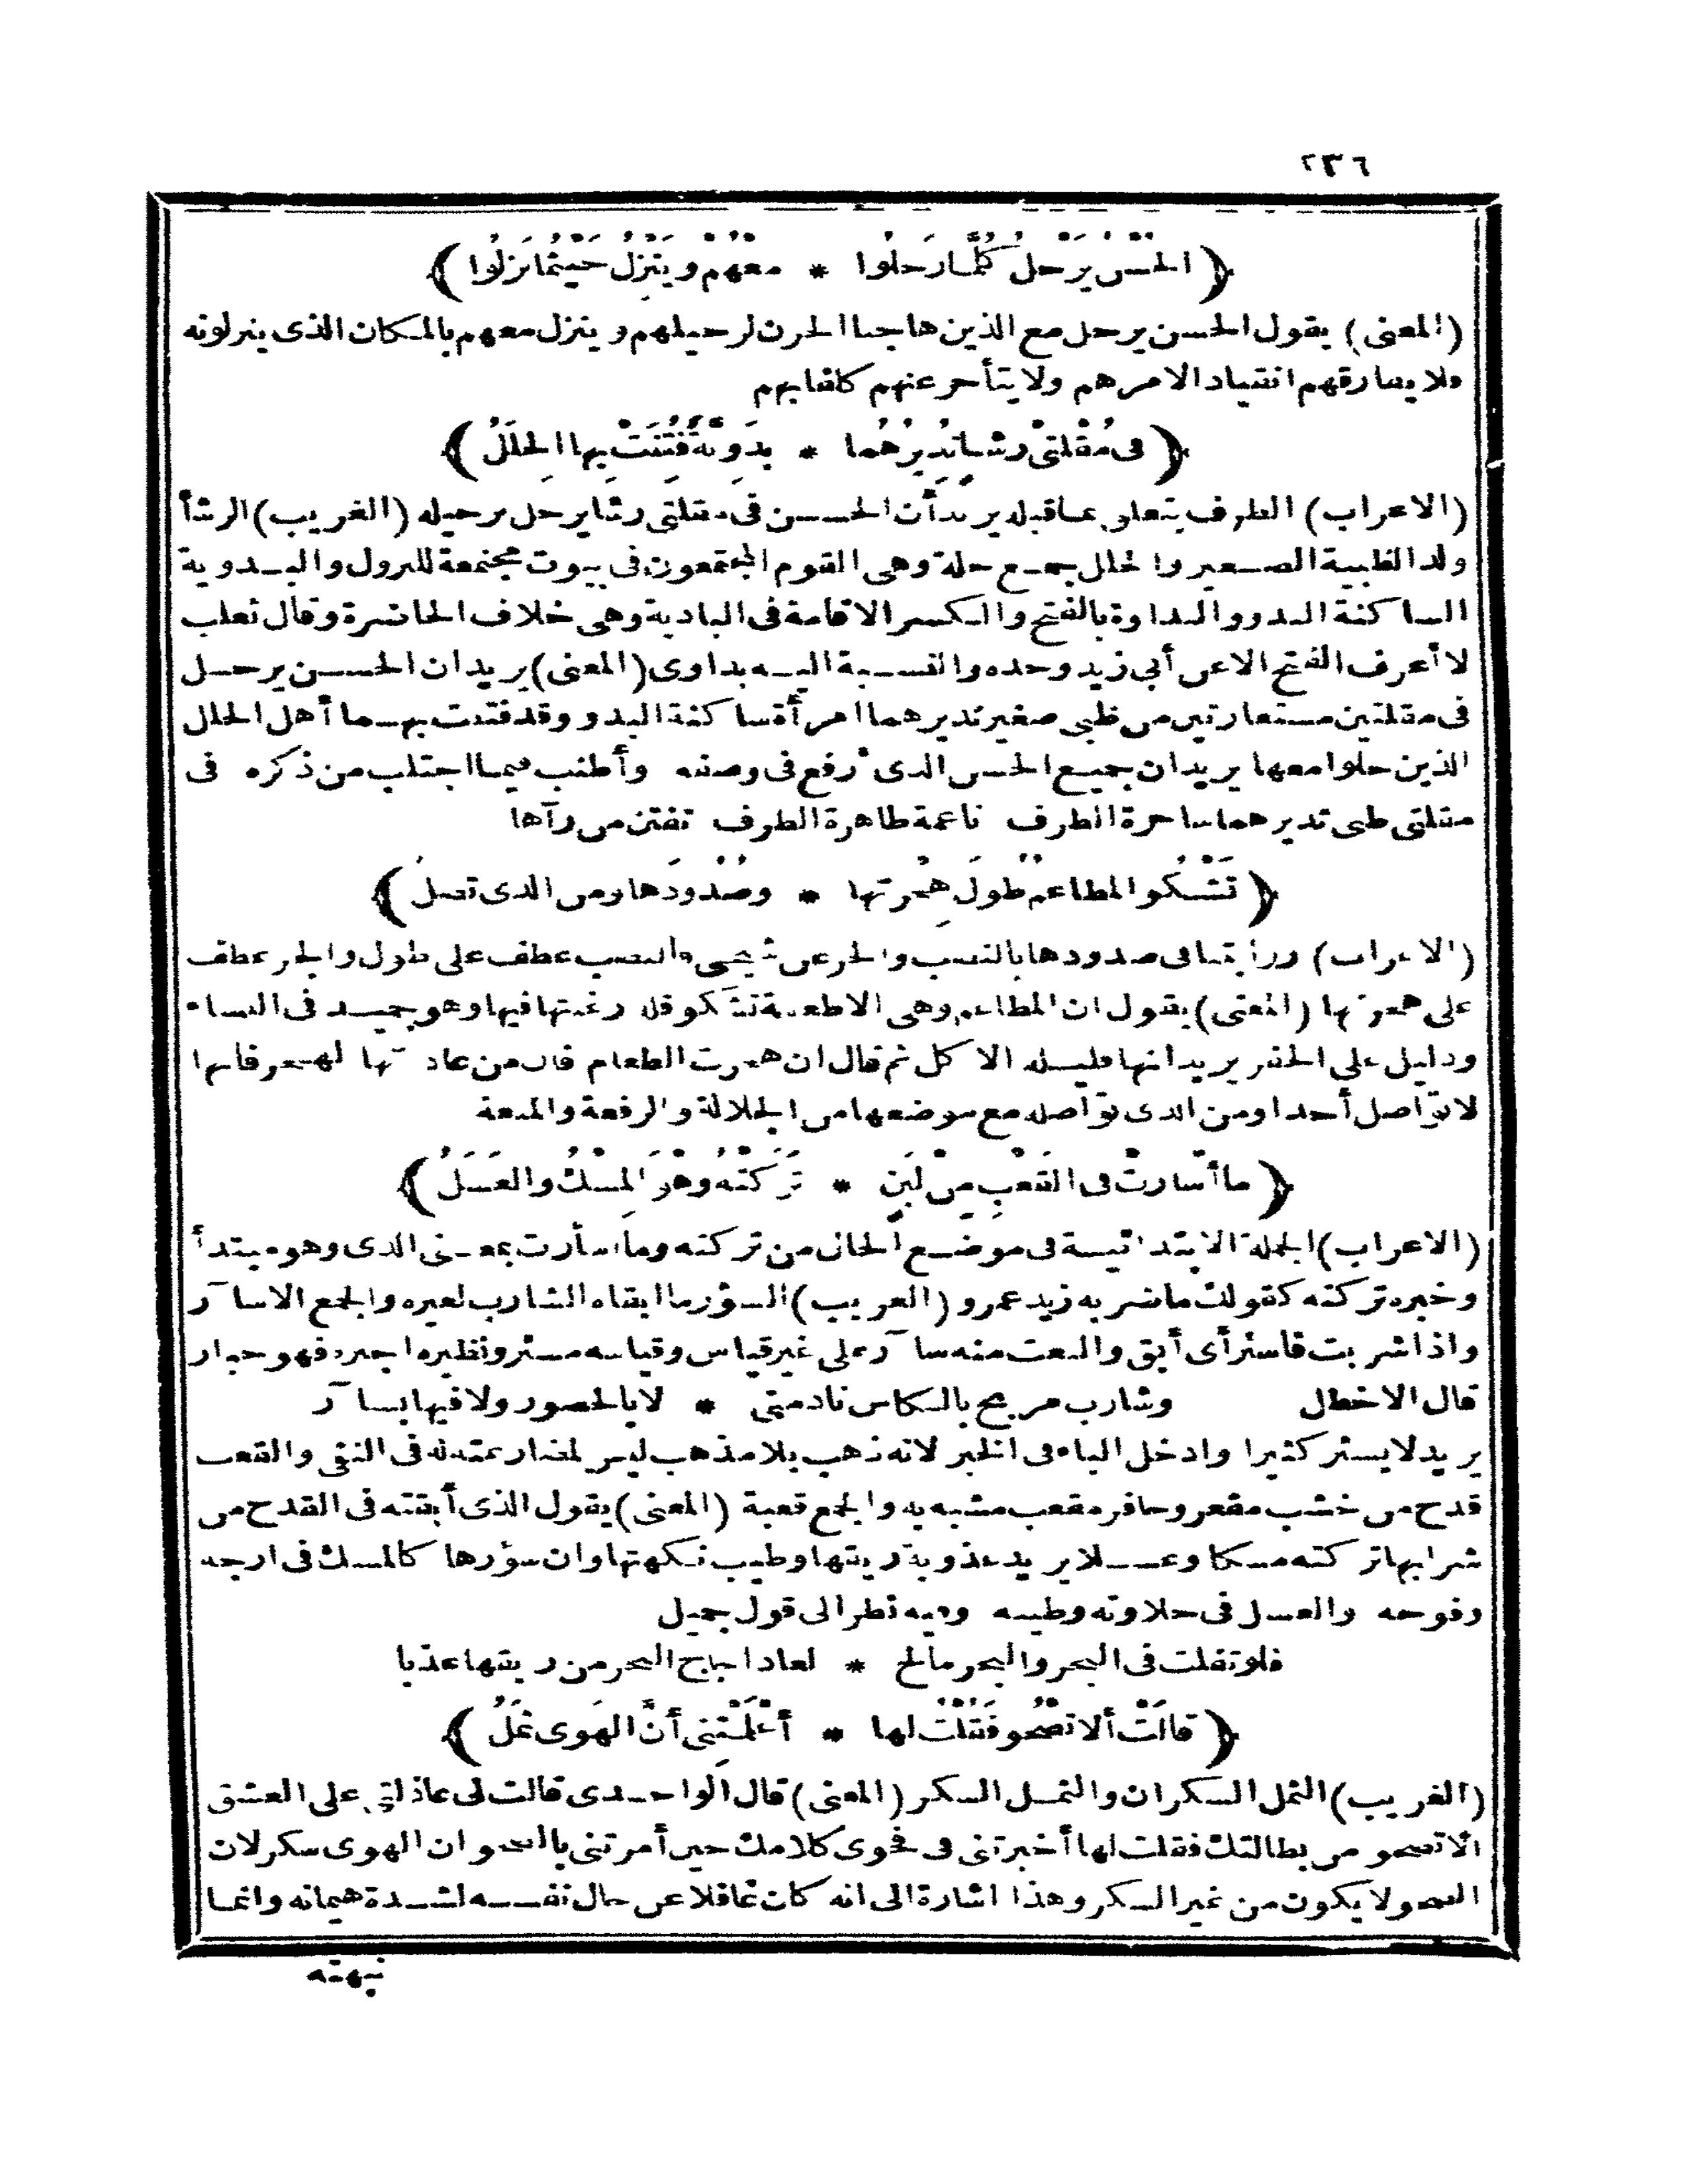 ٢٣٦
﴿ الحُسْنُ يَرْحَلُ كُلَّمَا رَحَلُوا * مَعَهُمْ وَيَنْزِلُ حَيْثُمَا نَزَلُوا ﴾
(المعنى) يقول الحسن يرحل مع الذين هاجنا الحزن لرحيلهم وينزل معهم بالمكان الذى ينزلونه
ولا يفارقهم انقيادا لامرهم ولا يتأخر عنهم كلفا بهم
﴿ فى مُقْلَتَىْ رَشَإٍ تُدِيرُهُما * بَدَوِيَّةٌ فُتِنَتْ بِها الحِلَلُ ﴾
(الاعراب) الظرف يتعلق بما قبله يريد أن الحسن فى مقلتى رشا يرحل برحيله (الغريب) الرشأ
ولد الظبية الصغير والحلل جمع حلة وهى القوم المجتمعون فى بيوت مجتمعة للنزول والبدوية
الساكنة البدو والبداوة بالفتح والكسر الاقامة فى البادية وهى خلاف الحاضرة وقال ثعلب
لا أعرف الفتح الا عن أبى زيد وحده والنسبة اليه بداوى (المعنى) يريد ان الحسن يرحل
فى مقلتين مستعارتين من ظبى صغير تديرهما امرأة ساكنة البدو وقد فتنت بهما أهل الحلل
الذين حلوا معها يريد ان جميع الحسن الذى رفع فى وصفه وأطنب فيما اجتلب من ذكره فى
مقلتى ظبى تديرهما ساحرة الطرف ناعمة ظاهرة الظرف تفتن من رآها
﴿ تَشْكُو المطاعمُ طُولَ هِجْرتها * وصُدُودَها ومن الذى تصلُ ﴾
(الاعراب) وروايتنا فى صدودها بالنصب والجر عن شيخى والنصب عطف على طول والجر عطف
على هجرتها (المعنى) يقول ان المطاعم وهى الاطعمة تشكو قلة رغبتها فيها وهو جميد فى النساء
ودليل على الخفر يريد انها قليلة الاكل ثم قال ان هجرت الطعام فان من عادتها الهجر فانها
لا تواصل أحدا ومن الذى تواصله مع موضعها من الجلالة والرفعة والمنعة
﴿ ما أسأرتْ فى القَعْبِ مِنْ لَبَنٍ * تَرَكَتْهُ وهْوَ المِسْكُ والعَسَلُ ﴾
(الاعراب) الجملة الابتدائية فى موضع الحال من تركته وما أسأرت بمعنى الذى وهو مبتدأ
وخبره تركته كقولك ما ضربه زيد عمرو (الغريب) السؤر ما ابقاه الشارب لغيره والجمع الاسآر
واذا شربت فاسئر أى أبق والنعت منه سآر على غير قياس وقياسه مسئر ونظيره اجبره فهو جبار
قال الاخطل وشارب مربح بالكاس نادمنى * لا بالحصور ولا فيها بسآر
يريد لا يسئر كثيرا وادخل الباء فى الخبر لانه ذهب بلا مذهب ليس لمضارعته له فى النفى والقعب
قدح من خشب مقعر وحافر مقعب مشبه به والجمع قعبة (المعنى) يقول الذى أبقته فى القدح من
شرابها تركته مسكا وعسلا يريد عذوبة ريقها وطيب نكهتها وان سؤرها كالمسك فى ارجه
وفوحه والعسل فى حلاوته وطيبه وفيه نظر الى قول جميل
فلو تفلت فى البحر والبحر مالح * لعاد اجاج البحر من ريقها عذبا
﴿ قالَتْ ألا تَصْحُو فَقُلْتُ لها * أعْلَمْتِنى أنَّ الهَوى ثَمَلُ ﴾
(الغريب) الثمل السكران والثمل السكر (المعنى) قال الواحدى قالت لى عاذلتى على العشق
ألا تصحو من بطالتك فقلت لها أخبرتنى فى فحوى كلامك حين أمرتنى بالصحو ان الهوى سكر لان
الصحو لا يكون من غير السكر وهذا اشارة الى انه كان غافلا عن حال نفسه لشدة هيمانه وانما
نبهته